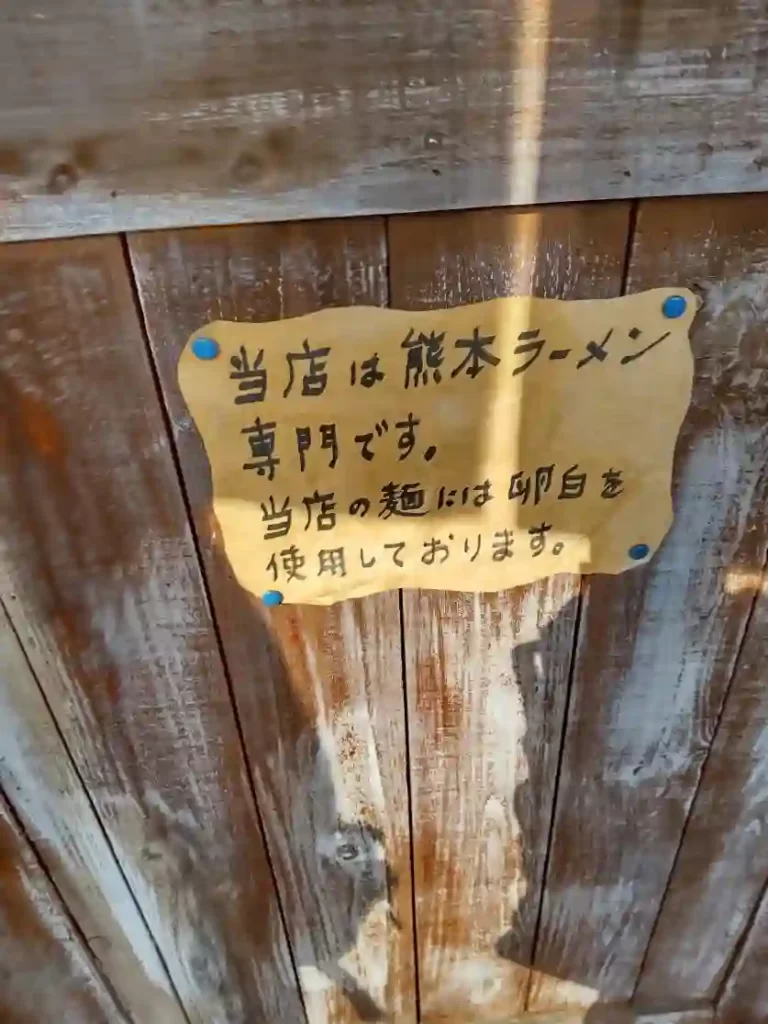 当店は熊本ラーメン
専門です。
当店の麺には卵白を
使用しております。